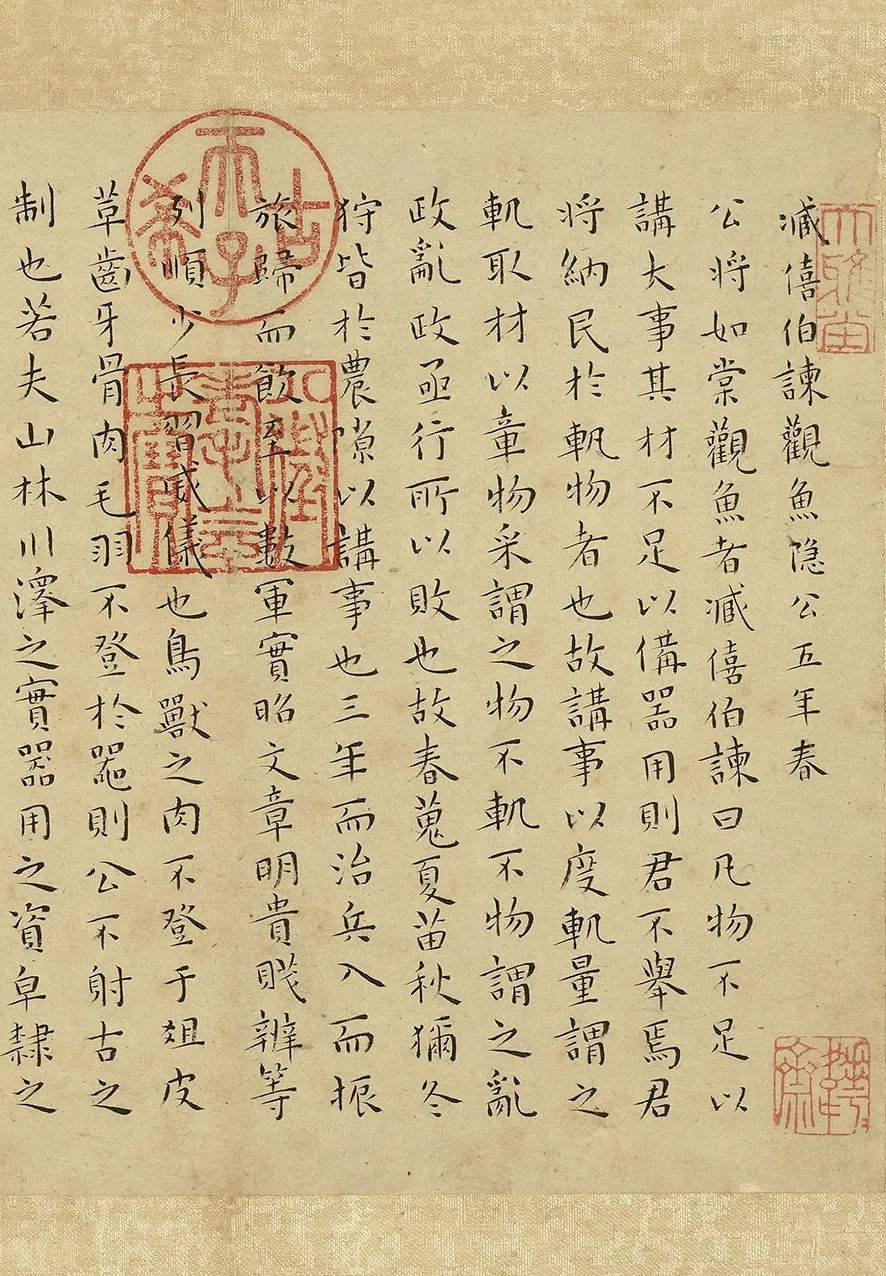 臧僖伯諫觀魚隐公五年春
公将如棠觀魚者臧僖伯諫曰凡物不足以
講大事其材不足以俻器用則君不舉焉君
将納民於軌物者也故講事以度軌量謂之
軌取材以章物采謂之物不軌不物謂之亂
政亂政亟行所以敗也故春蒐夏苗秋獮冬
狩皆於農隙以講事也三年而治兵入而振
旅歸而飲至以數軍實昭文章明貴賤辨等
列順少長習威儀也鳥獸之肉不登于俎皮
草齒牙骨肉毛羽不登於器則公不射古之
制也若夫山林川澤之實器用之資皁隸之
古希天子
八徵耄念之寶
大雅堂